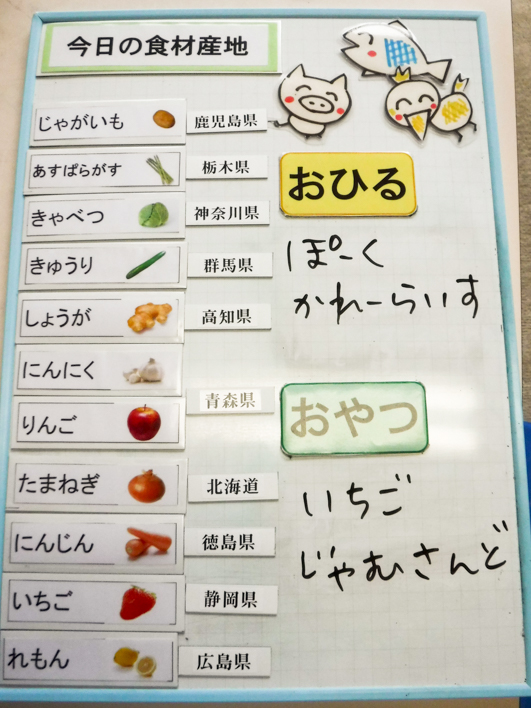 今日の食材産地
じゃがいも 鹿児島県
あすぱらがす 栃木県
きゃべつ 神奈川県
きゅうり 群馬県
しょうが 高知県
にんにく
青森県
りんご
たまねぎ 北海道
にんじん 徳島県
いちご 静岡県
れもん 広島県
おひる
ぽーく
かれーらいす
おやつ
いちご
じゃむさんど